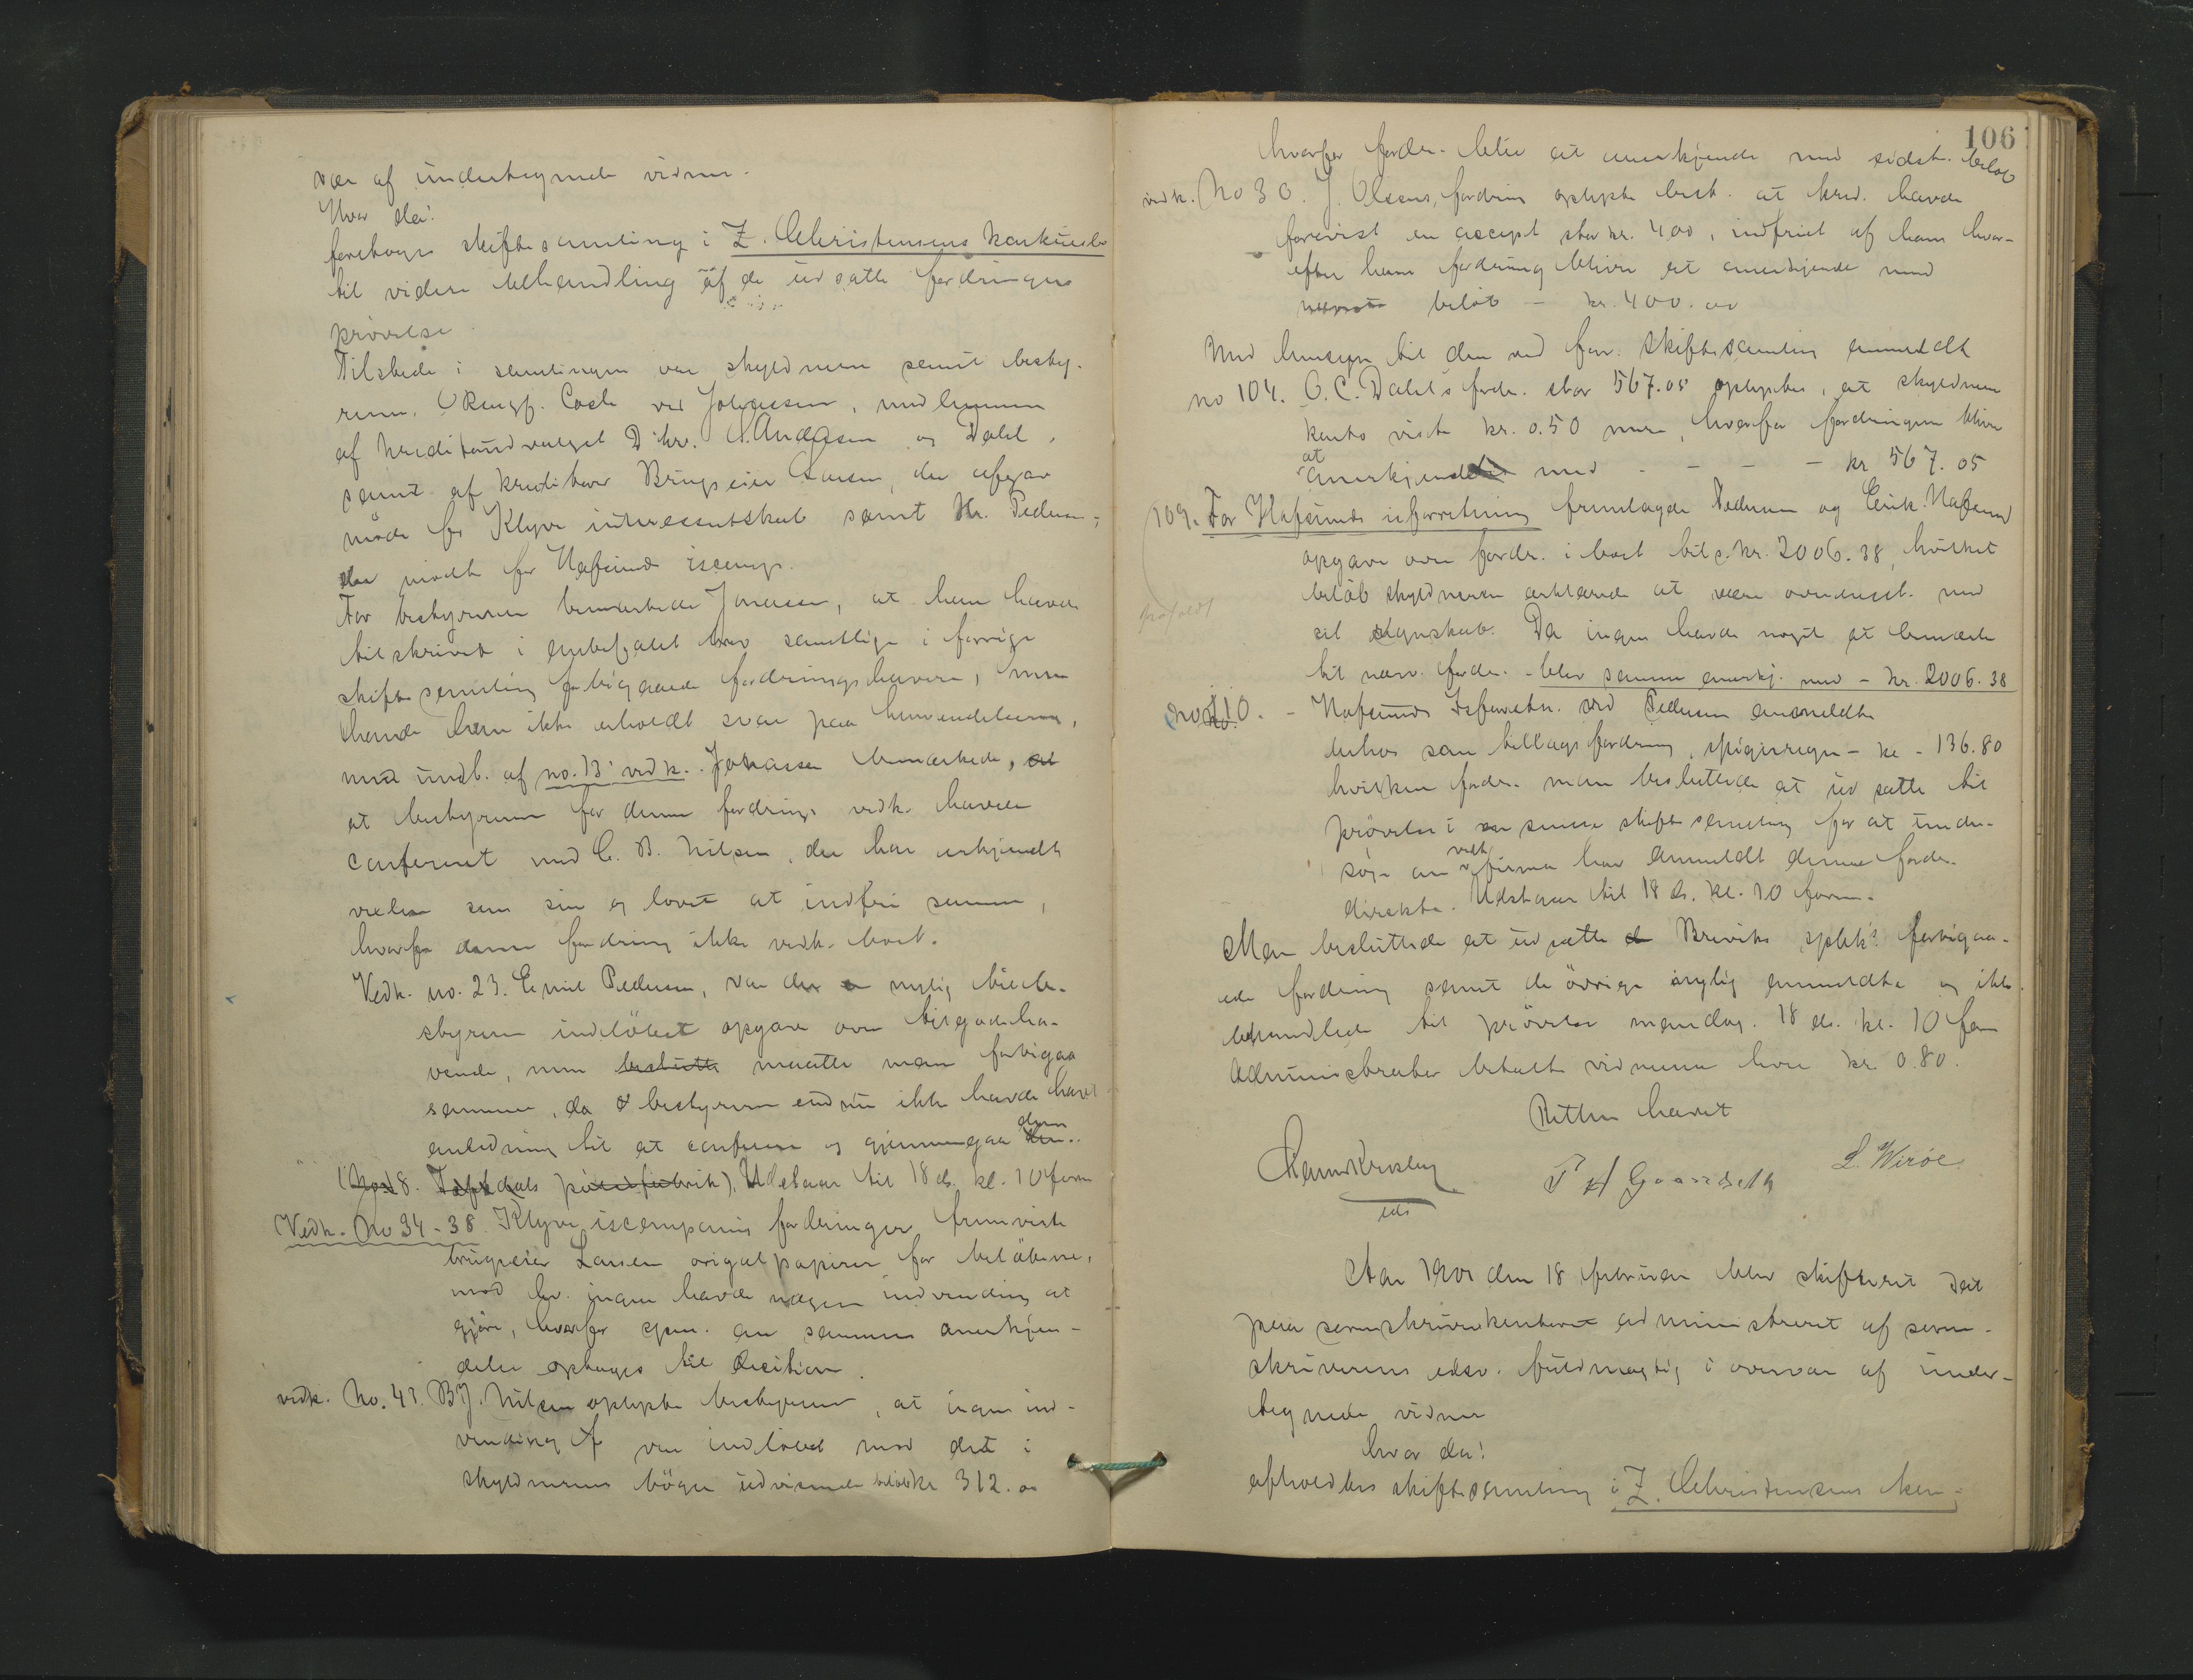 vær af undertegnede vidner.
Hvor da:
foretoges skiftesamling i Z. Christensens konkursbo
til videre behandling af de udsatte fordringers
prøvelse.
Tilstede i samlingen var skyldneren samt besty-
reren, ved Johnassen, medlemmer
af kreditorudvalget D'hr. Andersen og Dahl,
samt af kreditorer Brugseier Larsen, der afgav
møde for Klyve interessentskab samt Hr. Pedersen,
der mødte for Hafsund iscomp.
For bestyreren bemærkede Jonassen, at han havde
tilskrevet i anbefalet brev samtlige i forrige
skiftesamling forbigaaede fordringshavere, men
havde han ikke erholdt svar paa henvendelserne,
med undt. af no. 13 vedk. Jonassen bemærkede, at
at bestyreren for denne fordrings vedk. havde
confereret med C. B. Nilsen, der har erkjendt
vexlen som sin og lovet at indfri samme,
hvorfor denne fordring ikke vedk. boet.
Vedk. no. 23. Emil Pedersen, var der en nylig til be-
styreren indløbet opgave over tilgodeha-
vende, men beslutte maatte man forbigaa
samme, da bestyreren endnu ikke havde havt
anledning til at conferere og gjennemgaa den dem.
(No 8. Udstaar til 18 ds. kl. 10 form
Vedk. No 34-38 Klyve iscompanis fordringer fremviste
brugseier Larsen origalpapirer for beløbene,
mod hv. ingen havde nogen indvending at
gjøre, hvorfor spm. om sammes anerkjen-
delse optages til decition.
vedk. No. 41. B J. Nilsen oplyste bestyreren, at ingen ind-
vending var indløbet mod det i
skyldnerens bøger udvisende beløb kr 312.00
106
hvorfor fordr. blir at anerkjende med sidst. beløb
vedk. No 30. J. Olsens, fordring oplyste best. at kred. havde
forevist en accept stor kr. 400, indfriet af ham hvor-
efter hans fordring bliver at anerkjende med
beløb - kr. 400.00
Med hensyn til den ved forr. skiftesamling anmeldt
no 104. O. C. Dahl's fordr. stor 567.05 oplystes, at skyldneren
konto viste kr. 0.50 mere, hvorfor fordringen bliver
at anerkjende med - - - - kr 567.05
109. For Hafsunds isforretning fremlagde Pedersen og Erik. Hafsund
opgave over fordr. i boet til s. kr. 2006.38, hvilket
beløb skyldneren erklærede at være overensst. med
sit regnskab. Da ingen havde noget at bemærke
til nærv. fordr. - blev samme anerkj. med - kr. 2006.38
no 110. - Hafsunds Isforretn. ved Pedersen anmeldte
derhos som tillægsfordring, spigerregn - kr - 136.80
hvilken fordr. man besluttede at udsætte til
prøvelse i en senere skiftesamling for at under-
søge om vedk. firma har anmeldt denne fordr.
direkte. Udstaar til 18 ds. kl. 10 form.
Man besluttede at udsætte Breviks spbk's forbigaa-
ede fordring samt de øvrige nylig anmeldte og ikke
behandlede til prøvelse mandag 18 ds. kl. 10 form
Administrator betalte vidnerne hver kr. 0.80.
Retten hævet
L. Wirøe
eds
Aar 1901 den 18 februar blev skifteret sat
paa sorenskriverkontoret administreret af soren-
skriverens edsv. fuldmægtig i overvær af under-
tegnede vidner
hvor da:
afholdtes skiftesamling i Z. Christensens kon-